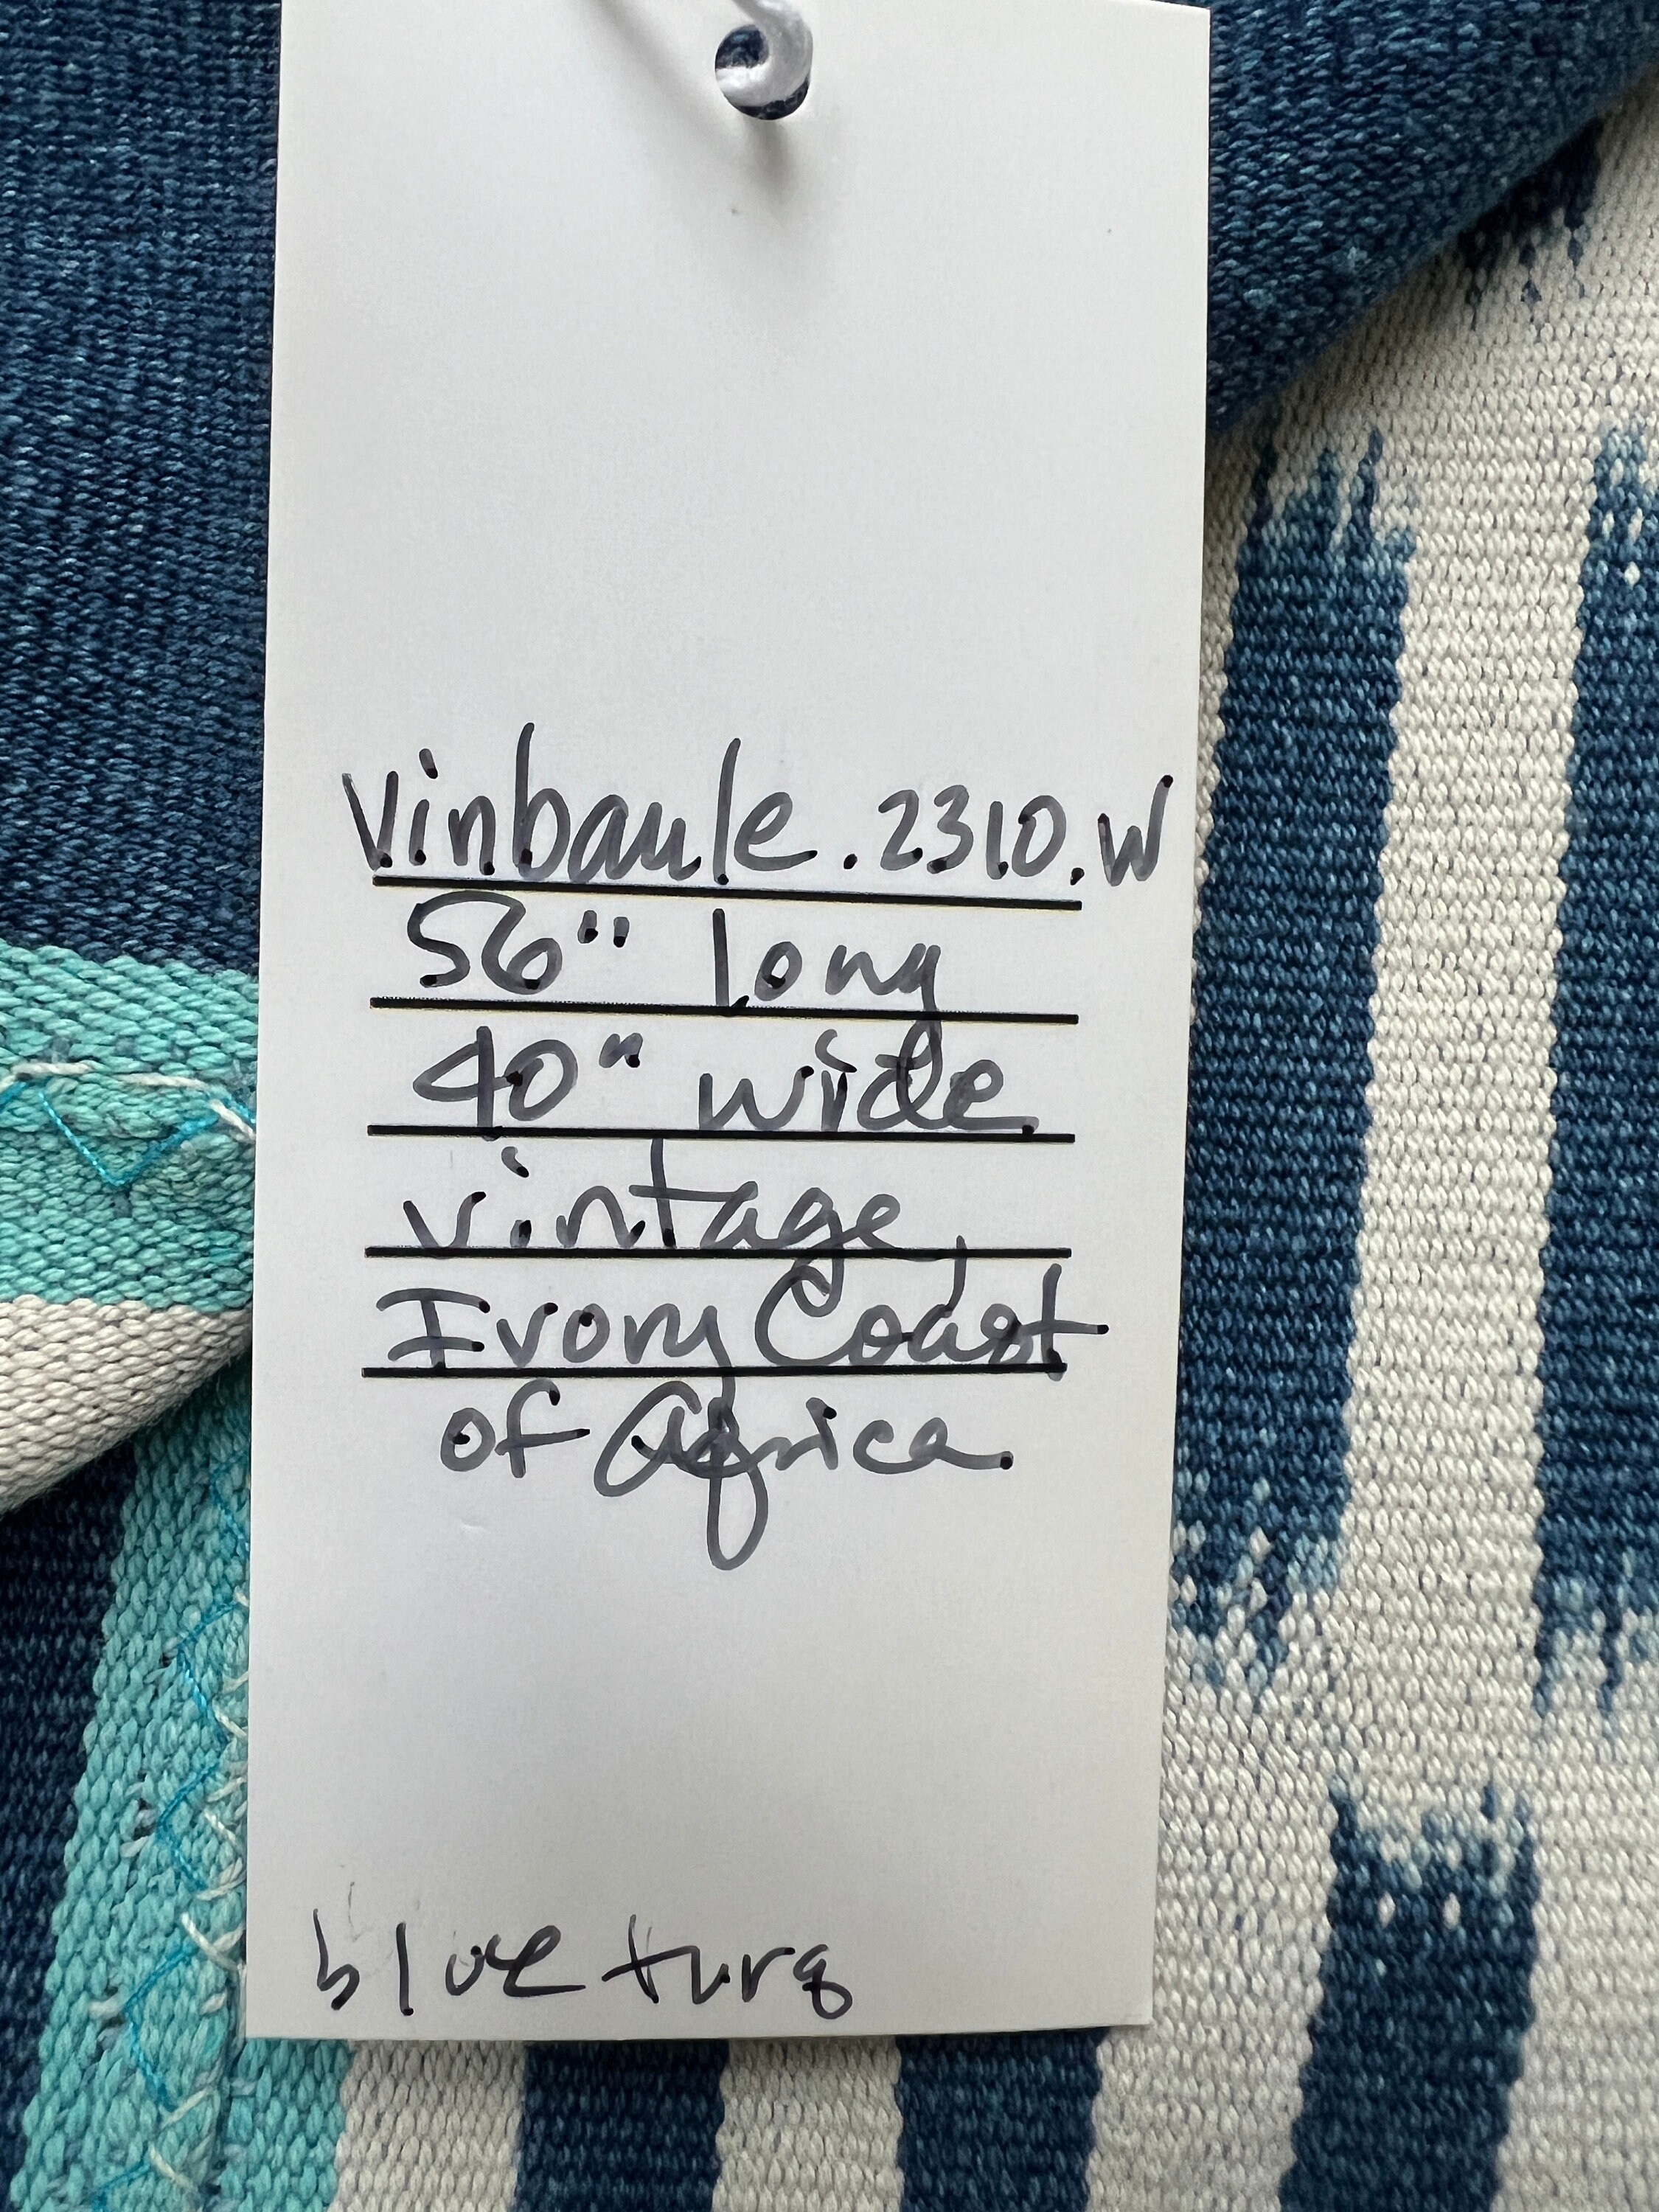 Vinbaule.2310.W
56" long
40" wide
vintage,
Ivory Coast
of Africa.
blue turq